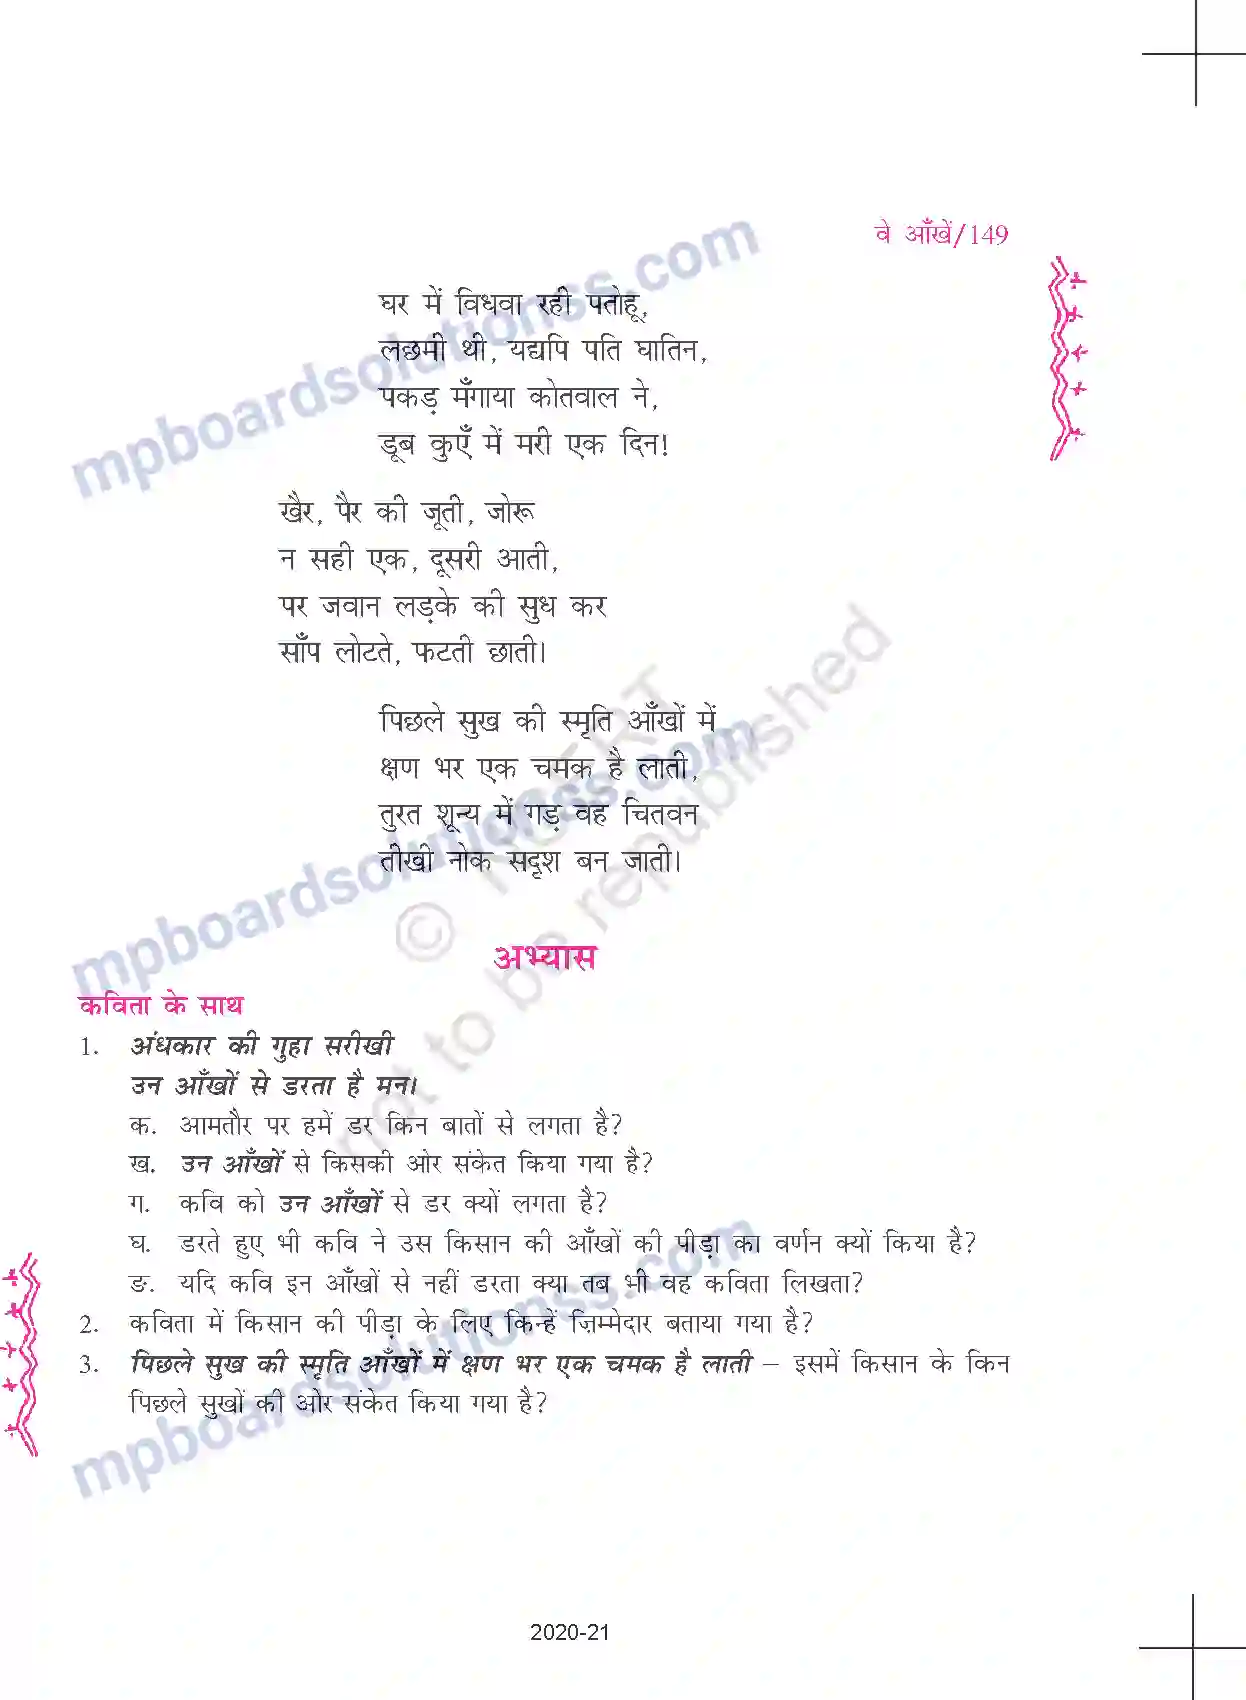 वे आँखें/149
घर में विधवा रही पतोहू,
लछमी थी, यद्यपि पति घातिन,
पकड़ मँगाया कोतवाल ने,
डूब कुएँ में मरी एक दिन!
खैर, पैर की जूती, जोरू
न सही एक, दूसरी आती,
पर जवान लड़के की सुध कर
साँप लोटते, फटती छाती।
पिछले सुख की स्मृति आँखों में
क्षण भर एक चमक है लाती,
तुरत शून्य में गड़ वह चितवन
तीखी नोक सदृश बन जाती।
अभ्यास
कविता के साथ
1. अंधकार की गुहा सरीखी
उन आँखों से डरता है मन।
क. आमतौर पर हमें डर किन बातों से लगता है?
ख. उन आँखों से किसकी ओर संकेत किया गया है?
ग. कवि को उन आँखों से डर क्यों लगता है?
घ. डरते हुए भी कवि ने उस किसान की आँखों की पीड़ा का वर्णन क्यों किया है?
ङ. यदि कवि इन आँखों से नहीं डरता क्या तब भी वह कविता लिखता?
2. कविता में किसान की पीड़ा के लिए किन्हें ज़िम्मेदार बताया गया है?
3. पिछले सुख की स्मृति आँखों में क्षण भर एक चमक है लाती – इसमें किसान के किन
पिछले सुखों की ओर संकेत किया गया है?
2020-21
mpboardsolutionss.com
mpboardsolutionss.com
mpboardsolutionss.com
© NCERT
not to be republished